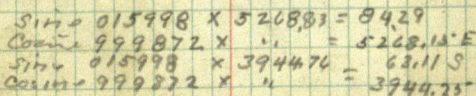 Sine 015998 × 5268,83 = 84,29
Cosine 999872 × " = 5268.15 E
Sine 015998 × 3944.76 = 63.11 S
Cosine 999872 × " = 3944.25